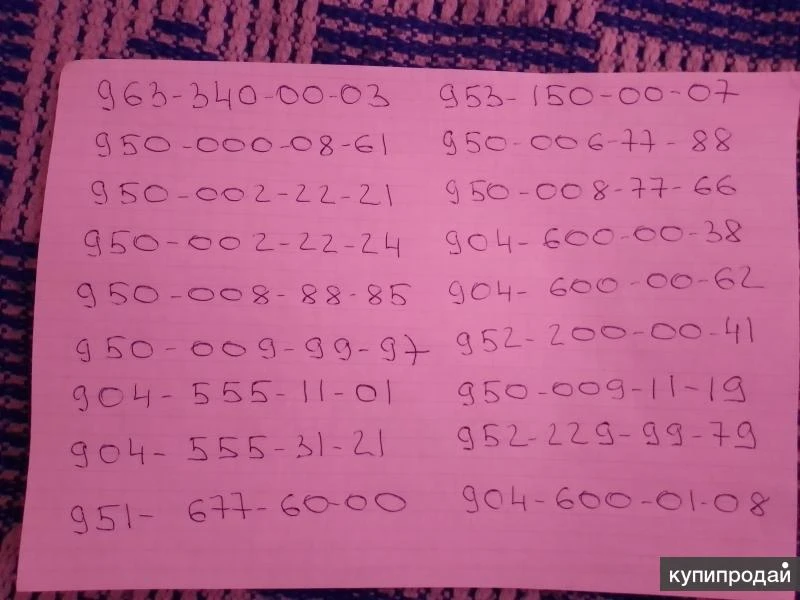 963-340-00-03 953-150-00-07
950-000-08-61 950-006-77-88
950-002-22-21 950-008-77-66
950-002-22-24 904-600-00-38
950-008-88-85 904-600-00-62
950-009-99-97 952-200-00-41
904-555-11-01 950-009-11-19
904-555-31-21 952-229-99-79
951-677-60-00 904-600-01-08
купипродай